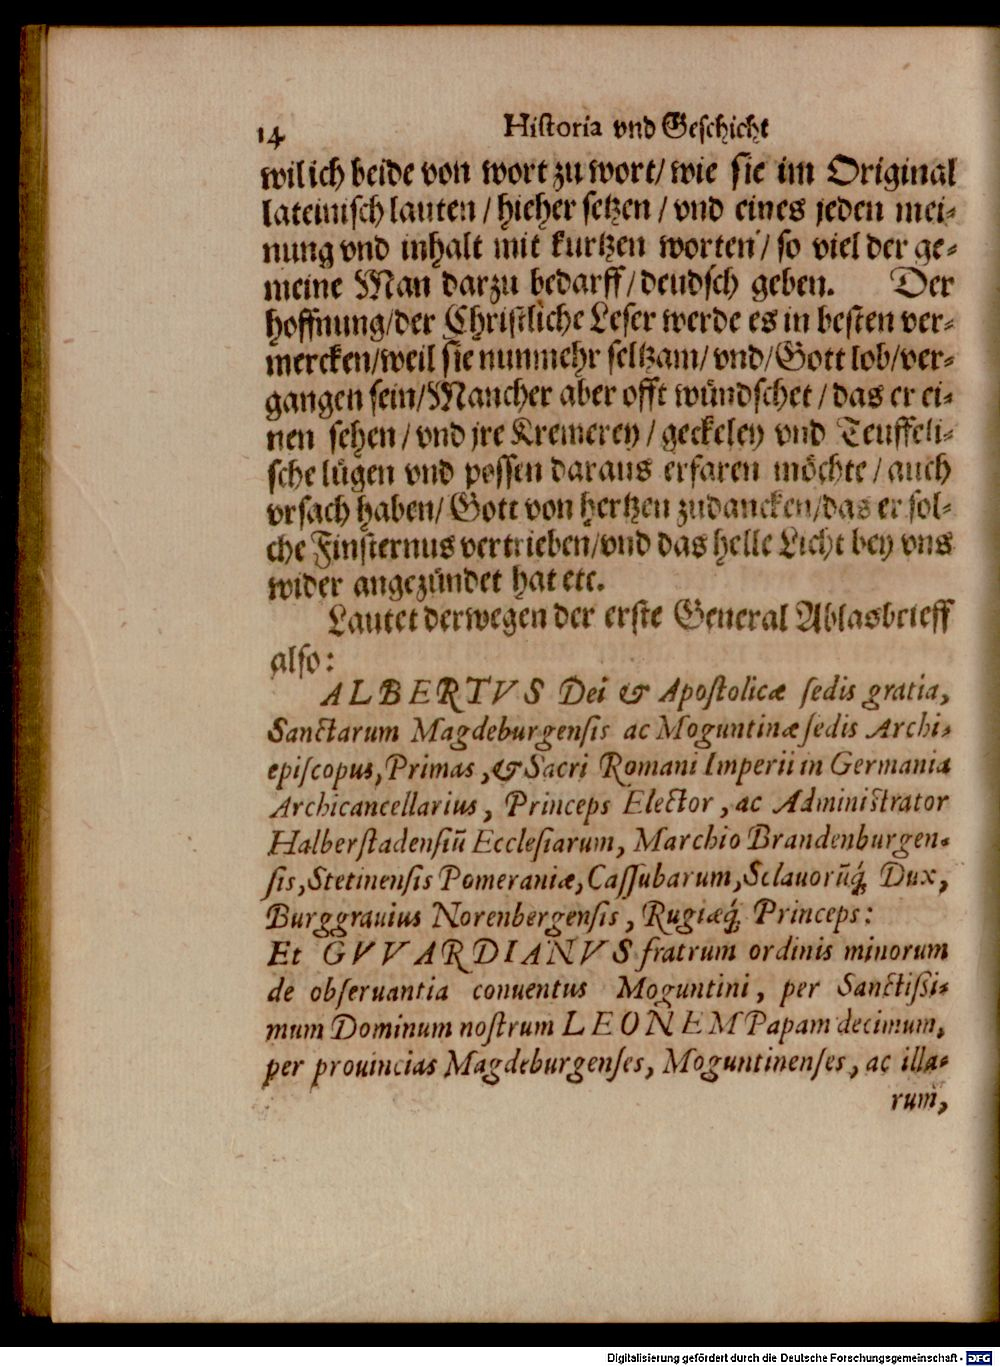 14 Historia vnd Geschicht
wil ich beide von wort zu wort/ wie sie im Original
lateinisch lauten / hieher setzen / vnd eines jeden mei-
nung vnd inhalt mit kurtzen worten / so viel der ge-
meine Man darzu bedarff / deudsch geben. Der
hoffnung/der Christliche Leser werde es in besten ver-
mercken/weil sie nunmehr seltzam/ vnd/Gott lob/ver-
gangen sein/Mancher aber offt wündschet / das er ei-
nen sehen / vnd jre Kremerey / geckeley vnd Teuffeli-
sche lügen vnd possen daraus erfaren möchte / auch
vrsach haben/ Gott von hertzen zudancken/das er sol-
che Finsternus vertrieben/vnd das helle Licht bey vns
wider angezündet hat etc.
Lautet derwegen der erste General Ablasbrieff
also:
ALBERTVS Dei & Apostolicæ sedis gratia,
Sanctarum Magdeburgensis ac Moguntinæ sedis Archi-
episcopus, Primas, & Sacri Romani Imperii in Germania
Archicancellarius, Princeps Elector, ac Administrator
Halberstadensiũ Ecclesiarum, Marchio Brandenburgen-
sis, Stetinensis Pomeraniæ, Cassubarum, Sclauorũq́; Dux,
Burggrauius Norenbergensis, Rugiæq́; Princeps:
Et GVVARDIANVS fratrum ordinis minorum
de obseruantia conuentus Moguntini, per Sanctissi-
mum Dominum nostrum LEONEM Papam decimum,
per prouincias Magdeburgenses, Moguntinenses, ac illa-
rum,
Digitalisierung gefördert durch die Deutsche Forschungsgemeinschaft - DFG